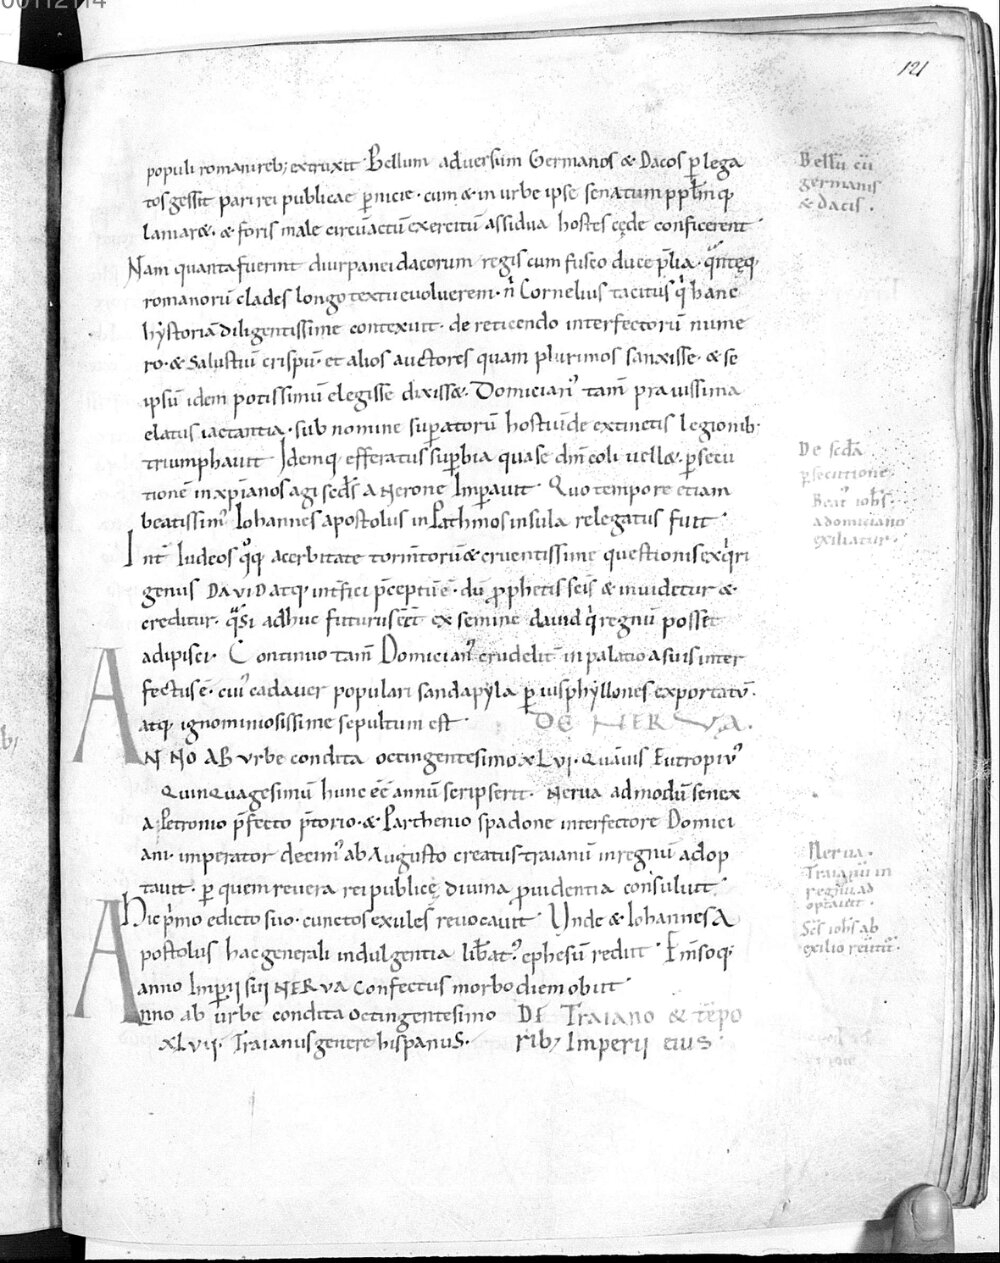 00112114
121
populi romani reb; extruxit. Bellum adversum Germanos & Dacos p̱ lega
tos gessit pari rei publicae p̱nicie. cum & in urbe ipse senatum pp̱l̄mq
laniar&. & foris male circuactū exercitū assidua hostes cęde conficerent
Nam quanta fuerint diurpanei dacorum regis cum fusco duce p̄lia. 
romanorū clades longo textu evolverem. n̄ Cornelius tacitus q̇ hanc
hystoriā diligentissime contexuit. de reticendo interfectorū nume
ro. & Salustiū crispū. et alios auctores quam plurimos sanxisse. & se
ipsū idem potissimū elegisse dixiss&. Domician᾽ tam̄ pravissima
elatus iactantia. sub nomine sup̱atorū hostiū de extinctis legionib.
triumphavit Idemq. efferatus sup̱bia qua se dm̄ coli vell&. p̱secu
tionē in xp̄ianos agi scd̄s a nerone Imp̱avit. Quo tempore etiam
beatissim᾽ Iohannes apostolus in Pathmos insula relegatus fuit
Int̄ Iudeos q̊q. acerbitate torm̄torū & cruentissime questionis exq̇ri
genus DAVID atq. int̄fici p̄ceptū ē. dū p̱phetis sc̄is & invidetur &
creditur. q̇si adhuc futurus eēt ex semine david q̇ regnū posset
adipisci. Continuo tam̄ Domician᾽ crudelit̄ in palatio a suis inter
fectus ē. cui᾽ cadaver populari sandapyla p̱ visphyllones exportatū.
atq. ignominiosissime sepultum est
DE NERVA.
ANNO AB urbe condita octingentesimo xLvi. Quāvis Eutropiu᾽
Quinquagesimū hunc eē annū scripserit. Nerva admodū senex
a Petronio p̄fecto p̄torio. & Parthenio spadone interfectore Domici
ani. imperator decim᾽ ab Augusto creatus traianū in regnū adop
tavit. p̱ quem revera rei publicę divina p̱videntia consuluit.
Hic p̄mo edicto suo. cunctos exules revocavit Unde & Iohannes A
postolus hac generali indulgentia lib̄at᾽. ephesū rediit Em̄soq.
anno Imp̱ii sui NERVA confectus morbo diem obiit
Anno ab urbe condita octingentesimo
DE Traiano & tēpo
xLvii. Traianus genere hispanuS.
rib; Imperii eius
Bellū cū
germanis
& dacis.
De scd̄a
p̱secutione
Beat᾽ ioh̄s
a domiciano
exiliatur.
Nerva.
Traianū in
regnū ad
optavit.
Sc̄s ioh̄s ab
exilio